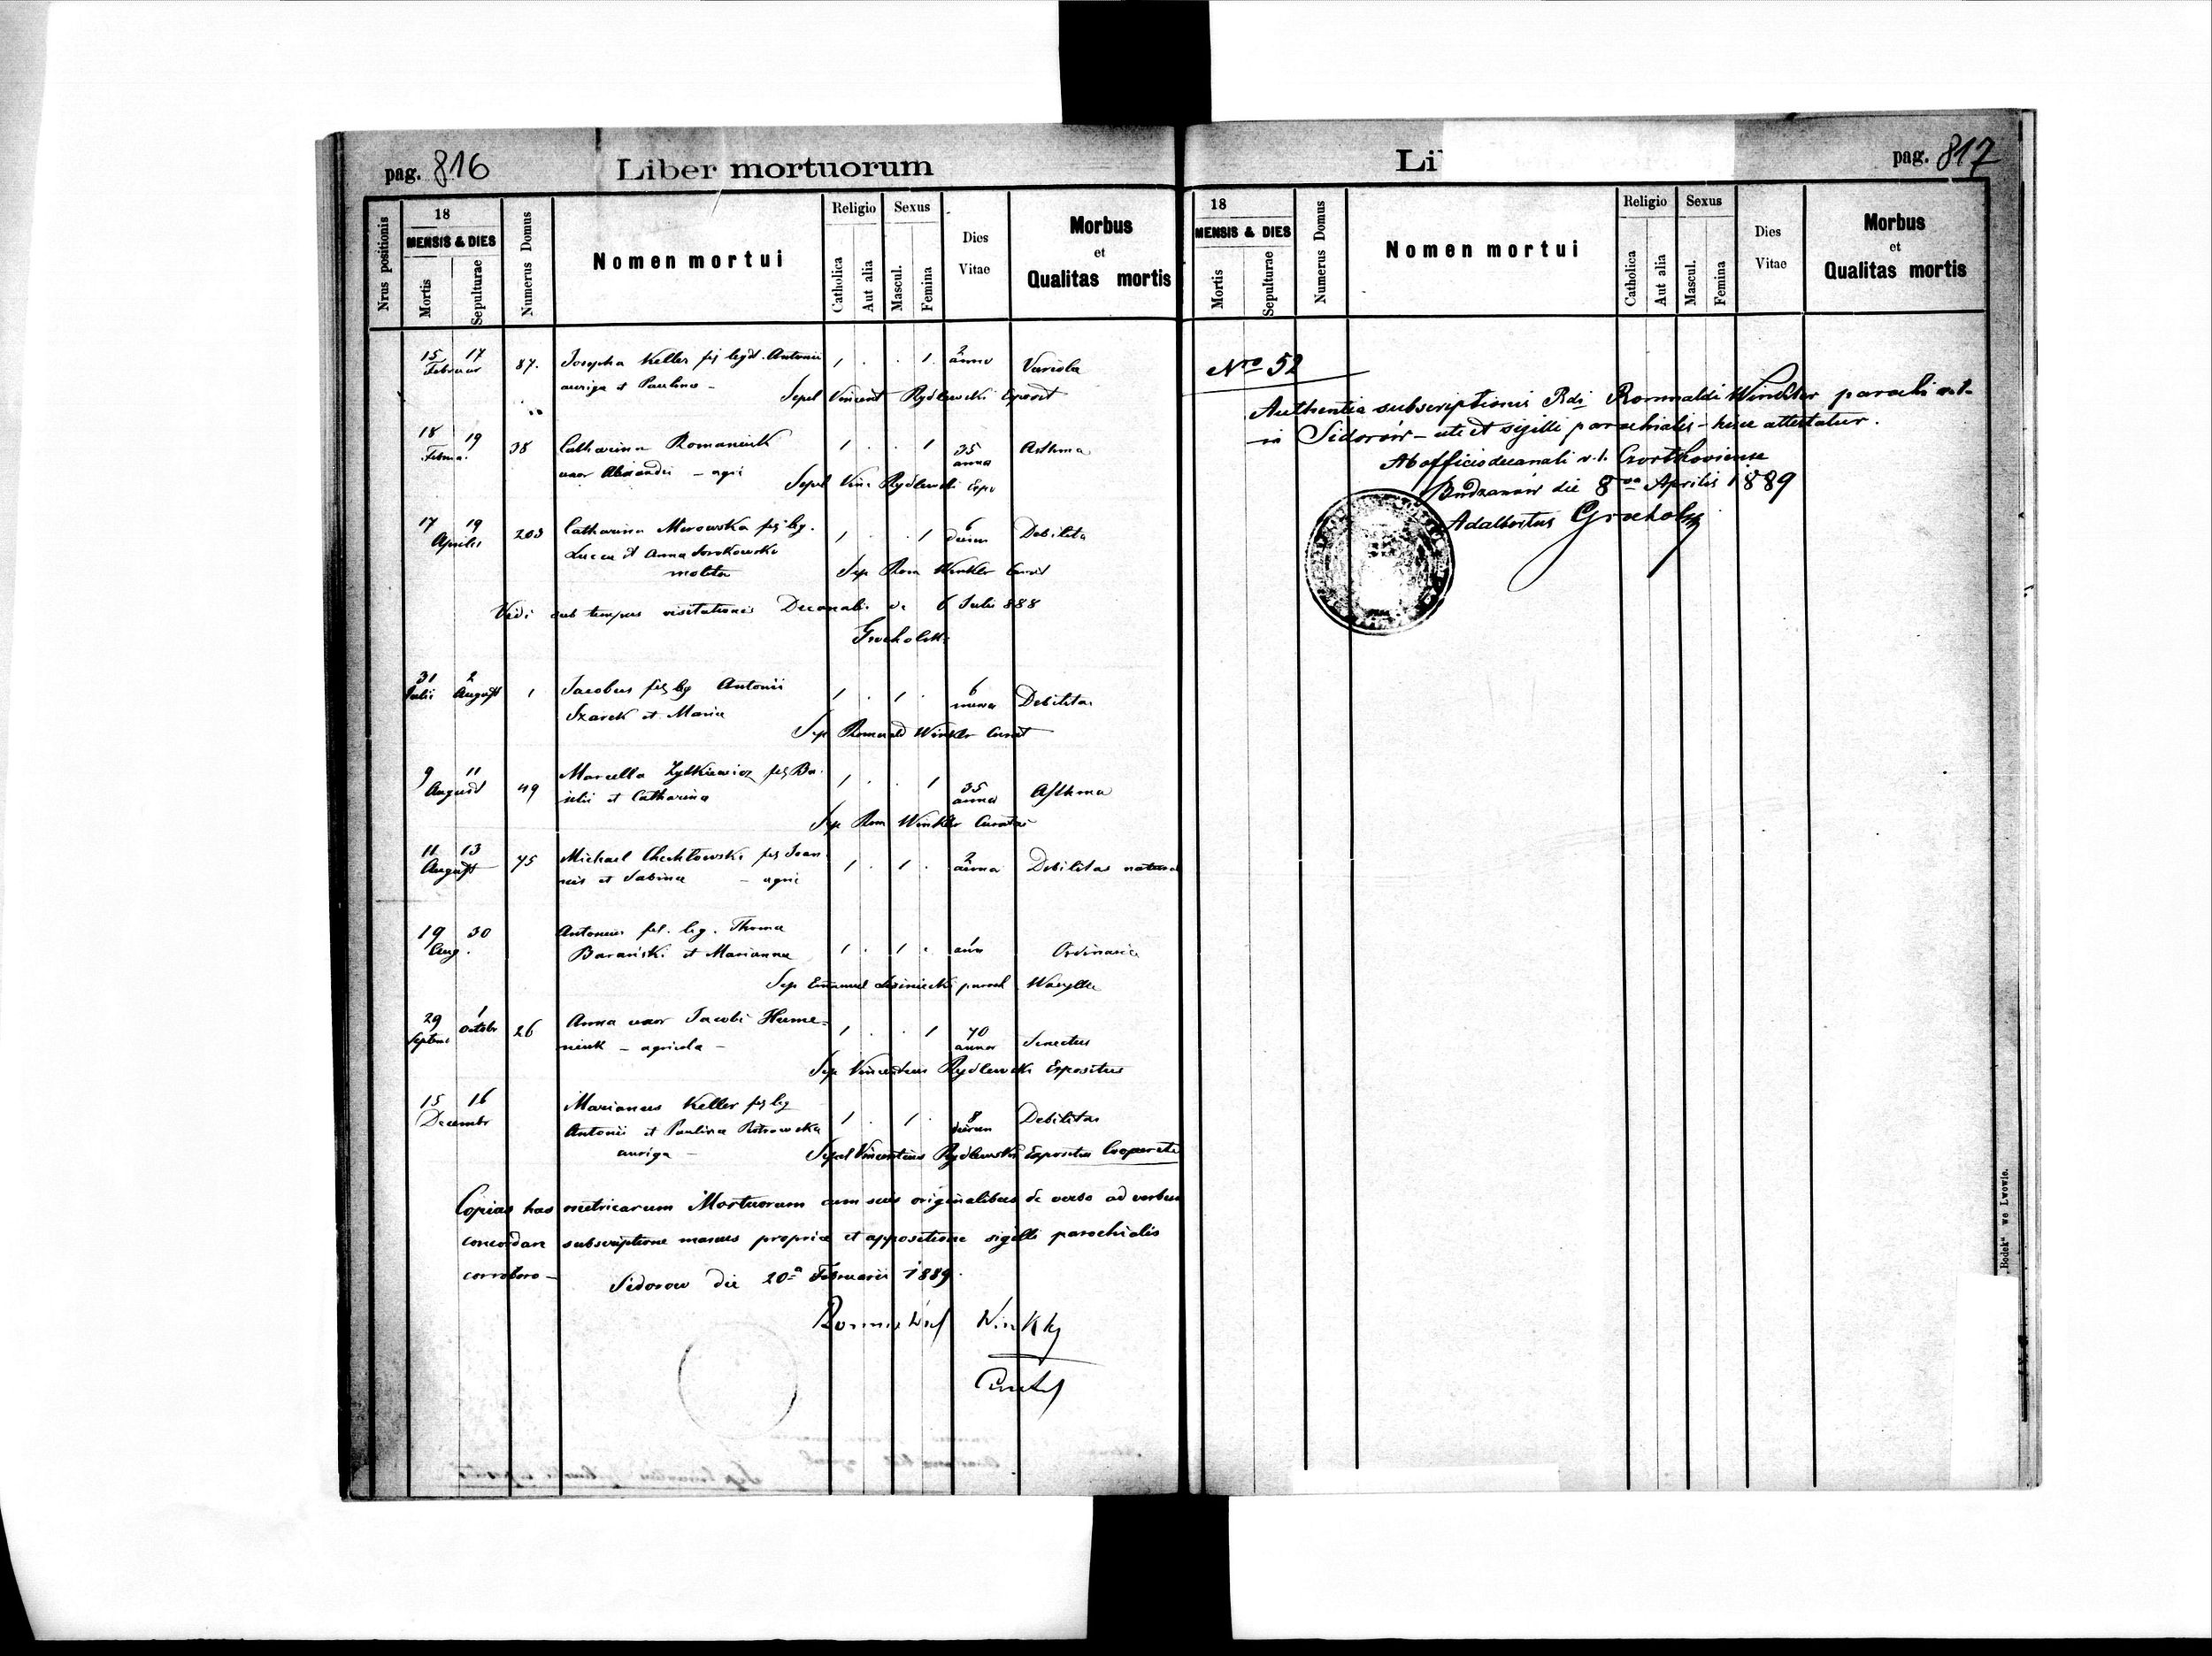 pag. 816
Liber mortuorum
Nrus positionis
18
MENSIS & DIES
Mortis
Sepulturae
Numerus Domus
Nomen mortui
Religio
Catholica
Aut alia
Sexus
Mascul.
Femina
Dies
Vitae
Morbus
et
Qualitas mortis
15 17 2
Februar 87. Josepha Keller Antonii 1 . . 1. anno Variola
auriga et Paulina –
Sepel Vincent Rydlewski Exposit
18 19 38 Catharina Romaniuk 1 . . 1 35 Asthma
uxor – agri anna
Sepel Vinc Rydlewski Expo
17 19 203 Catharina fil leg. 1 . . 1 6 Debilita
Aprilis
Lucea et Anna Sorokowski
Sep Rom Winkler
Vidi sub tempus visitationis Decanali de 6 Julii 888
Grocholski
31 2
Julii August 1 Jacobus fil leg Antonii 1 . 1 . 6 Debilitas
Szarek et Maria
Sep Romuald Winkler Curat
9 11
August 49 Marcella Zytkiewicz fil Ba- 1 . . 1 35 Asthma
silii et Catharina
Sep Rom Winkler Curatus
11 13
August 75 Michael fil Joan- 1 . 1 . 2 anna Debilitas natural
nis et Sabina – agri
19 30 Antonius fil. leg. Thoma
Aug. Barański et Marianna 1 . 1 . 1 Ordinaria
Sep Emanuel paroch
29 1
Septem Octobr 26 Anna uxor Jacobi Hume- 1 . . 1 70 Senectus
niuk – agricola –
Sep Vincentius Rydlewski Expositus
15 16 Marianus Keller fil leg
Decembr 1 . 1 . 8 dierum Debilitas
Antonii et Paulina
auriga –
Sepel Vincentius Rydlewski Expositus Cooperato
Copias has metricarum Mortuorum cum suis originalibus de verbo ad verbum
concordare subscriptione manus propria et appositione sigilli parochialis
corroboro –
Sidorow die 20a Februarii 1889.
Romuald Winkler
pag. 817
18
MENSIS & DIES
Mortis
Sepulturae
Numerus Domus
Nomen mortui
Religio
Catholica
Aut alia
Sexus
Mascul.
Femina
Dies
Vitae
Morbus
et
Qualitas mortis
Nro 52
Authentia subscriptionis Rdi Romualdi Winkler parochi r.l.
in Sidorów – uti et sigilli parochialis – hisce attestatur.
Ab officio decanali r.l. Czortkoviense
Budzanów die 8va Aprilis 1889
Adalbertus Grocholski
Bodek" we Lwowie.